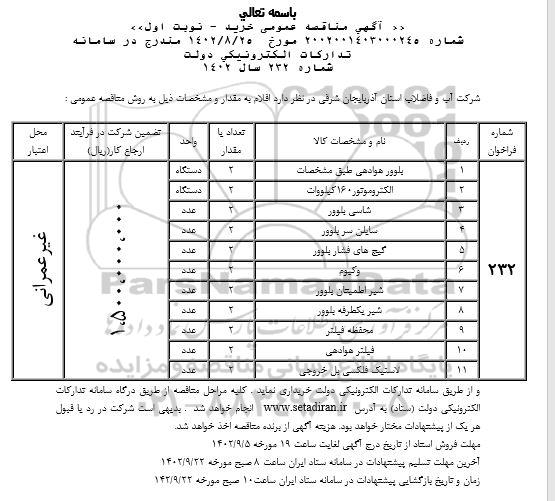 باسمه تعالي
<< آگهي مناقصه عمومی خرید - نوبت اول>>
شماره ۲۰۰۲۰۰۱۴۰۳۰۰۰۲۴۵ مورخ ۱۴۰۲/۸/۲۵ مندرج در سامانه
تدارکات الکترونیکي دولت
شماره ۲۳۲ سال ۱۴۰۲
شرکت آب و فاضلاب استان آذربایجان شرقی در نظر دارد اقلام به مقدار و مشخصات ذیل به روش مناقصه عمومی :
شماره فراخوان ردیف نام و مشخصات کالا تعداد یا مقدار واحد تضمین شرکت در فرآیند ارجاع کار(ریال) محل اعتبار
۲۳۲ ۱.۵۰۰.۰۰۰.۰۰۰ غیرعمرانی
۱ بلوور هوادهی طبق مشخصات ۲ دستگاه
۲ الکتروموتور۱۶۰کیلووات ۲ دستگاه
۳ شاسی بلوور ۲ عدد
۴ سایلن سر بلوور ۲ عدد
۵ گیج های فشار بلوور ۲ عدد
۶ وکیوم ۲ عدد
۷ شیر اطمینان بلوور ۲ عدد
۸ شیر یکطرفه بلوور ۲ عدد
۹ محفظه فیلتر ۲ عدد
۱۰ فیلتر هوادهی ۲ عدد
۱۱ لاستیک فلکسی بل خروجی ۲ عدد
و از طریق سامانه تدارکات الکترونیکی دولت خریداری نماید . کلیه مراحل مناقصه از طریق درگاه سامانه تدارکات
الکترونیکی دولت (ستاد) به آدرس www.setadiran.ir انجام خواهد شد . بدیهی است شرکت در رد یا قبول
هر یک از پیشنهادات مختار خواهد بود. هزینه آگهی از برنده مناقصه اخذ خواهد شد.
مهلت فروش اسناد از تاریخ درج آگهی لغایت ساعت ۱۹ مورخه ۱۴۰۲/۹/۵
آخرین مهلت تسلیم پیشنهادات در سامانه ستاد ایران ساعت ۸ صبح مورخه ۱۴۰۲/۹/۲۲
زمان و تاریخ بازگشایی پیشنهادات در سامانه ستاد ایران ساعت۱۰ صبح مورخه ۱۴۲/۹/۲۲